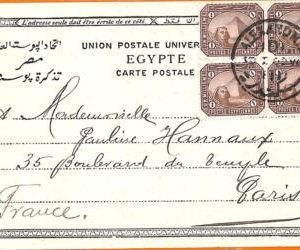 L'adresse seule doit être écrite de ce côté.
اتحاد البوستة العا
UNION POSTALE UNIVER
مصر
EGYPTE
تذكرة بوستة
CARTE POSTALE
1 1
1 1
Mademoiselle
Pauline Hannaux
35 Boulevard du Temple
Paris
France.